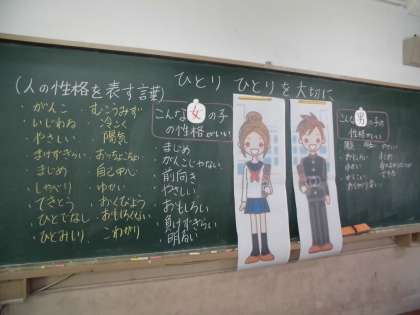 ひとり ひとりを大切に
(人の性格を表す言葉)
がんこ むこうみず
いじわる 冷こく
やさしい 陽気
まけずぎらい おっちょこちょい
まじめ 自己中心
しゃべり
てきとう おくびょう
ひとでなし おもしろくない
ひとみしり こわがり
こんな女の子
の性格がいい!
まじめ
がんこじゃない
前向き
やさしい
おもしろい
負けずぎらい
明るい
こんな男の子
性格がいい
やさしい
おもしろい まじめ